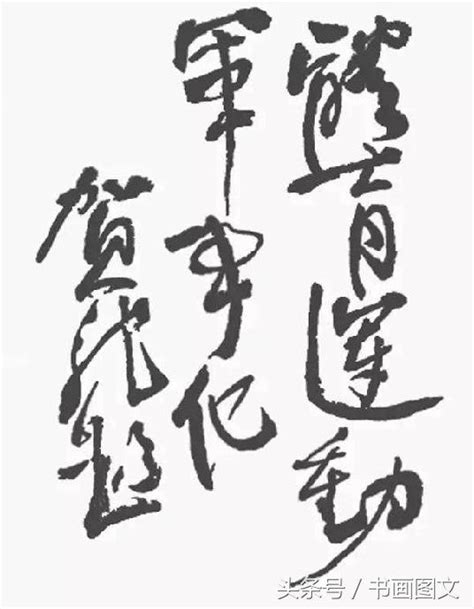 體育運動
軍事化
賀龍題
头条号 / 书画图文